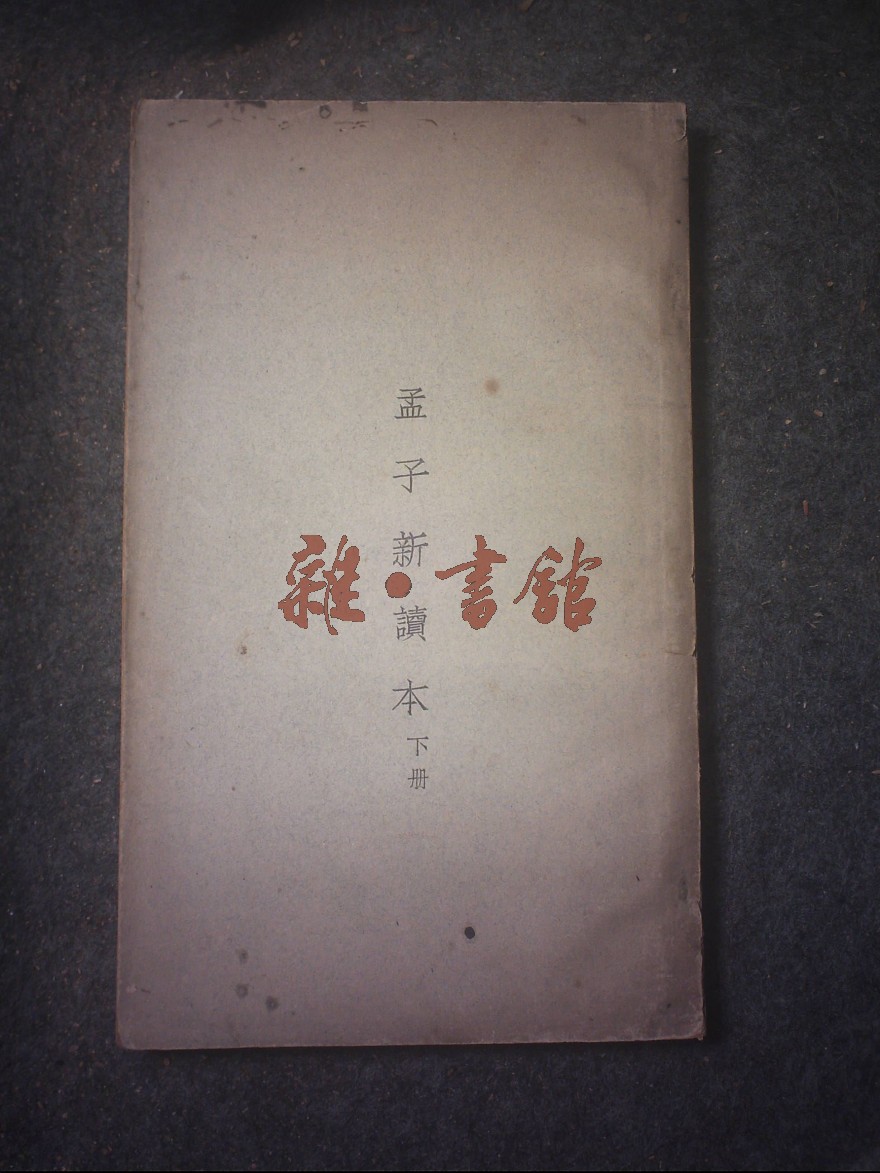 孟子新讀本
下册
雜·書館